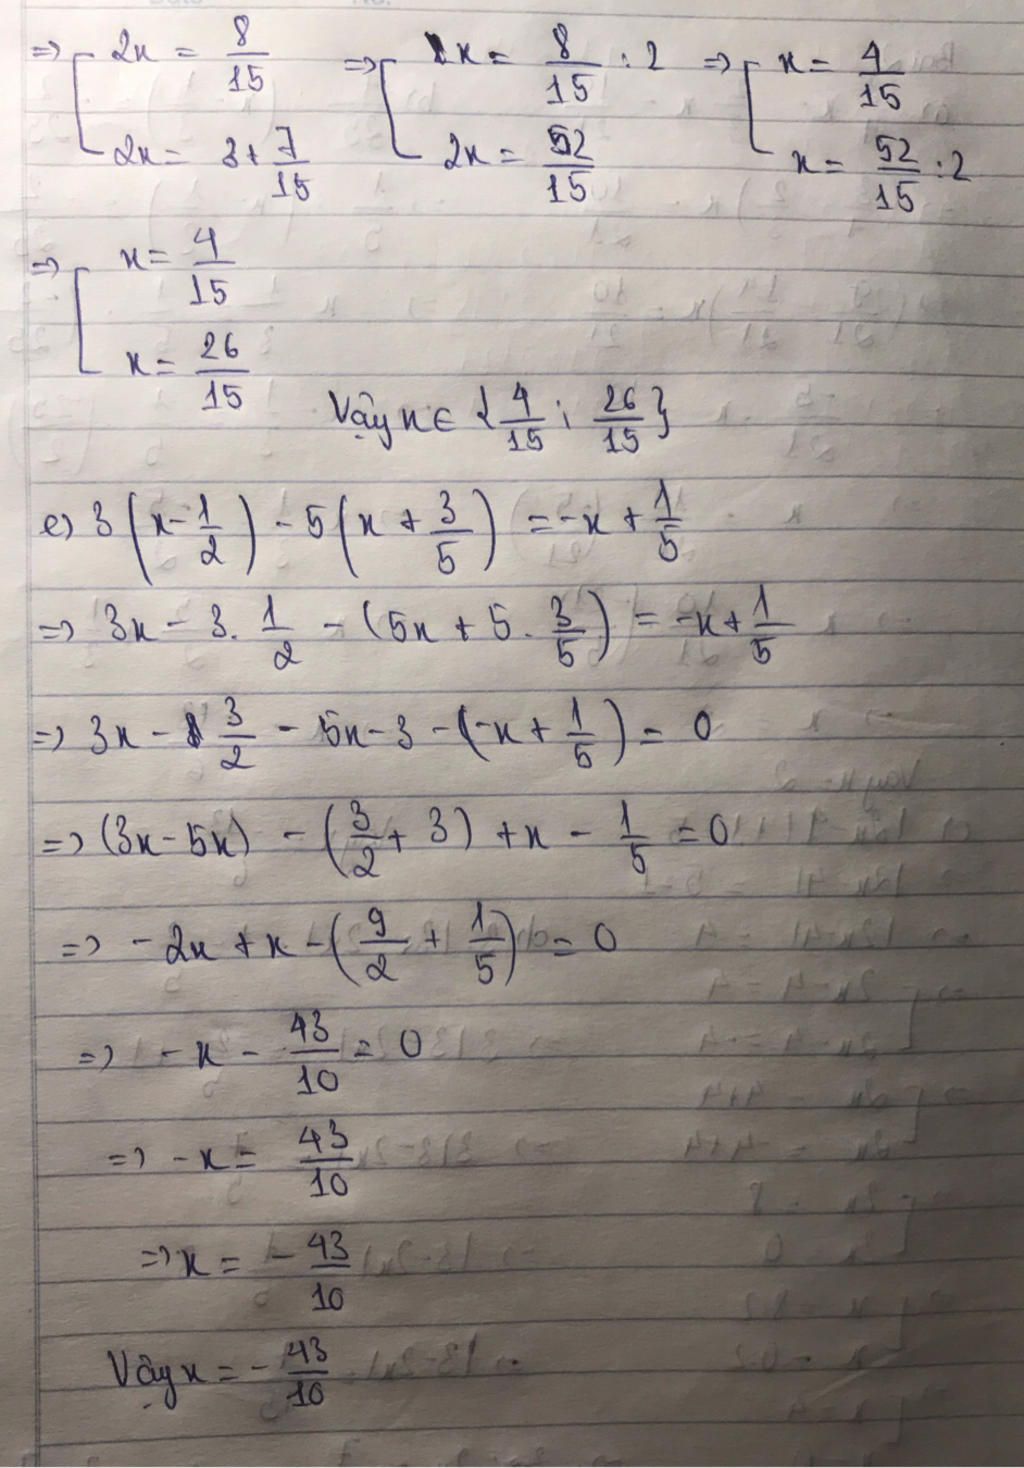 ⇒ [ 2x = 8/15 ; 2x = 3 + 7/15 ⇒ [ x = 8/15 : 2 ; 2x = 52/15 ⇒ [ x = 4/15 ; x = 52/15 : 2
⇒ [ x = 4/15 ; x = 26/15
Vậy x ∈ { 4/15 ; 26/15 }
e) 3(x - 1/2) - 5(x + 3/5) = -x + 1/5
⇒ 3x - 3. 1/2 - (5x + 5 . 3/5) = -x + 1/5
⇒ 3x - 3/2 - 5x - 3 - (-x + 1/5) = 0
⇒ (3x - 5x) - (3/2 + 3) + x - 1/5 = 0
⇒ -2x + x - (9/2 + 1/5) = 0
⇒ -x - 43/10 = 0
⇒ -x = 43/10
⇒ x = - 43/10
Vậy x = - 43/10